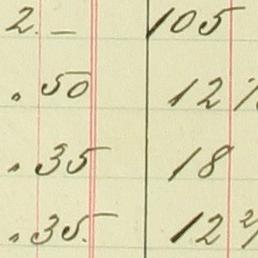 2. – 105
.50 12
.35 18
.35 12 2/